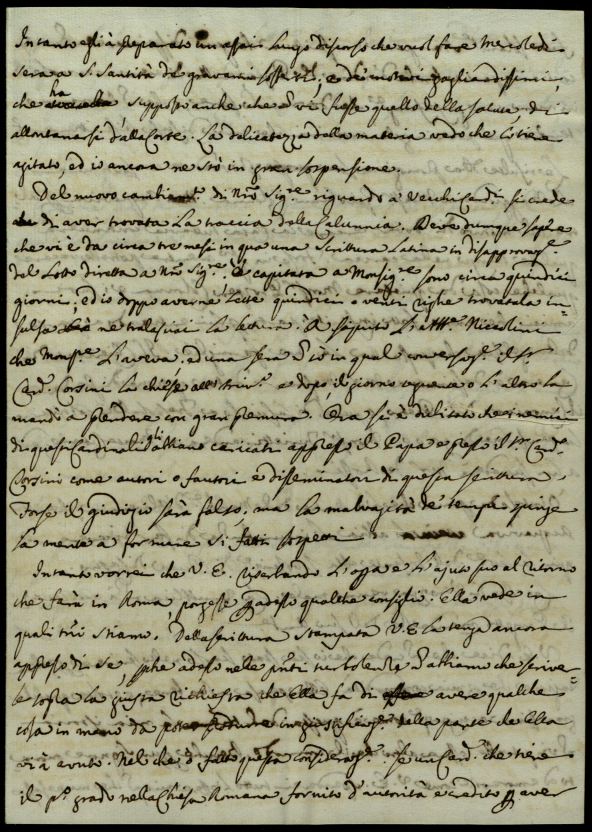 Intanto egli à preparato un assai lungo discorso che vuol fare Mercoledì
sera a S. Santità de' gravami sofferti, e de' motivi gagliardissimi,
che ha supposto anche che vi fosse quello della salute, di
allontanarsi dalla Corte. La delicatezza della materia vedo che lo tiene
agitato, ed io ancora ne stò in gran sospensione.
Del nuovo cambiamt.º di Nrõ Sig.re riguardo a' Vecchi Card.i si crede
di aver trovata la traccia della Calunnia. Deve dunque sapere
che vi è da circa tre mesi in qua una Scrittura Latina in disapprovaz.e
del Lotto diretta a Nrõ Sig.re, è capitata a Monsig.re sono circa quindici
giorni, ed io doppo averne lette quindici o venti righe trovatala in=
sulsa ne tralasciai la lettura. À saputo l'Abb.e Niccolini
che Mons.re l'aveva, ed una sera in qual conversaz.e il Sr.
Card. Corsini la chiese e dopo il giorno seguente o l'altro la
mandò a prendere con gran premura. Ora si è dubitato che i nemici
di questi Cardinali gli abbiano caricati appresso il Papa e presso il Sr. Card.
Corsini come autori o fautori e disseminatori di questa scrittura.
Forse il giudizio sarà falso, ma la malvagità de' tempi spinge
la mente a formare sì fatti sospetti
Intanto vorrei che V. E. riserbando l'opra e l'ajuto suo al ritorno
che farà in Roma, porgesse adesso qualche consiglio. Ella vede in
quali stiamo. Della scrittura stampata V. E. la tenga ancora
appresso di se, perche adesso nelle pnti turbolenze abbiamo che scrive=
re sopra la giusta richiesta che Ella fa di avere qualche
cosa in mano da in giustificaz.e della parte che Ella
vi à avuto. Nel che ò fatto questa consideraz.e. Se un Card. che tiene
il p.º grado nella Chiesa Romana fornito d'autorità e credito aver